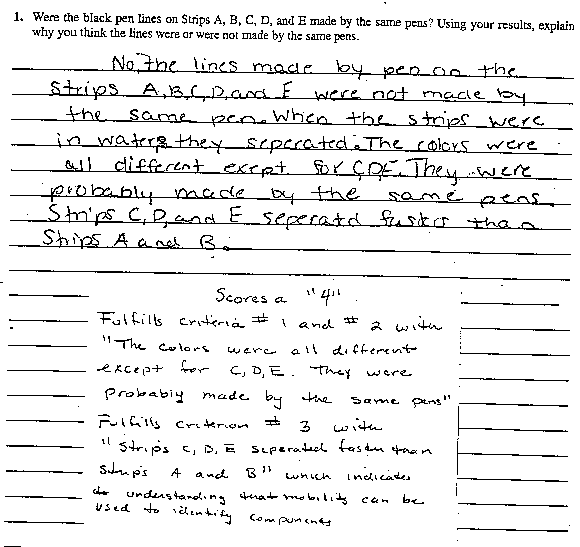 1. Were the black pen lines on Strips A, B, C, D, and E made by the same pens? Using your results, explain
why you think the lines were or were not made by the same pens.
No, the lines made by pen on the
Strips A,B,C,D,and E were not made by
the same pen. When the strips were
in waters they seperated. The colors were
all different exept for CDE. They were
probably made by the same pens.
Strips C, D, and E seperatd faster than
Strips A and B.
Scores a "4".
Fulfills criteria # 1 and # 2 with
"The colors were all different
except for C, D, E. They were
probably made by the same pens"
Fulfills criterion # 3 with
"Strips C, D, E seperated faster than
Strips A and B" which indicates
understanding that mobility can be
used to identify components